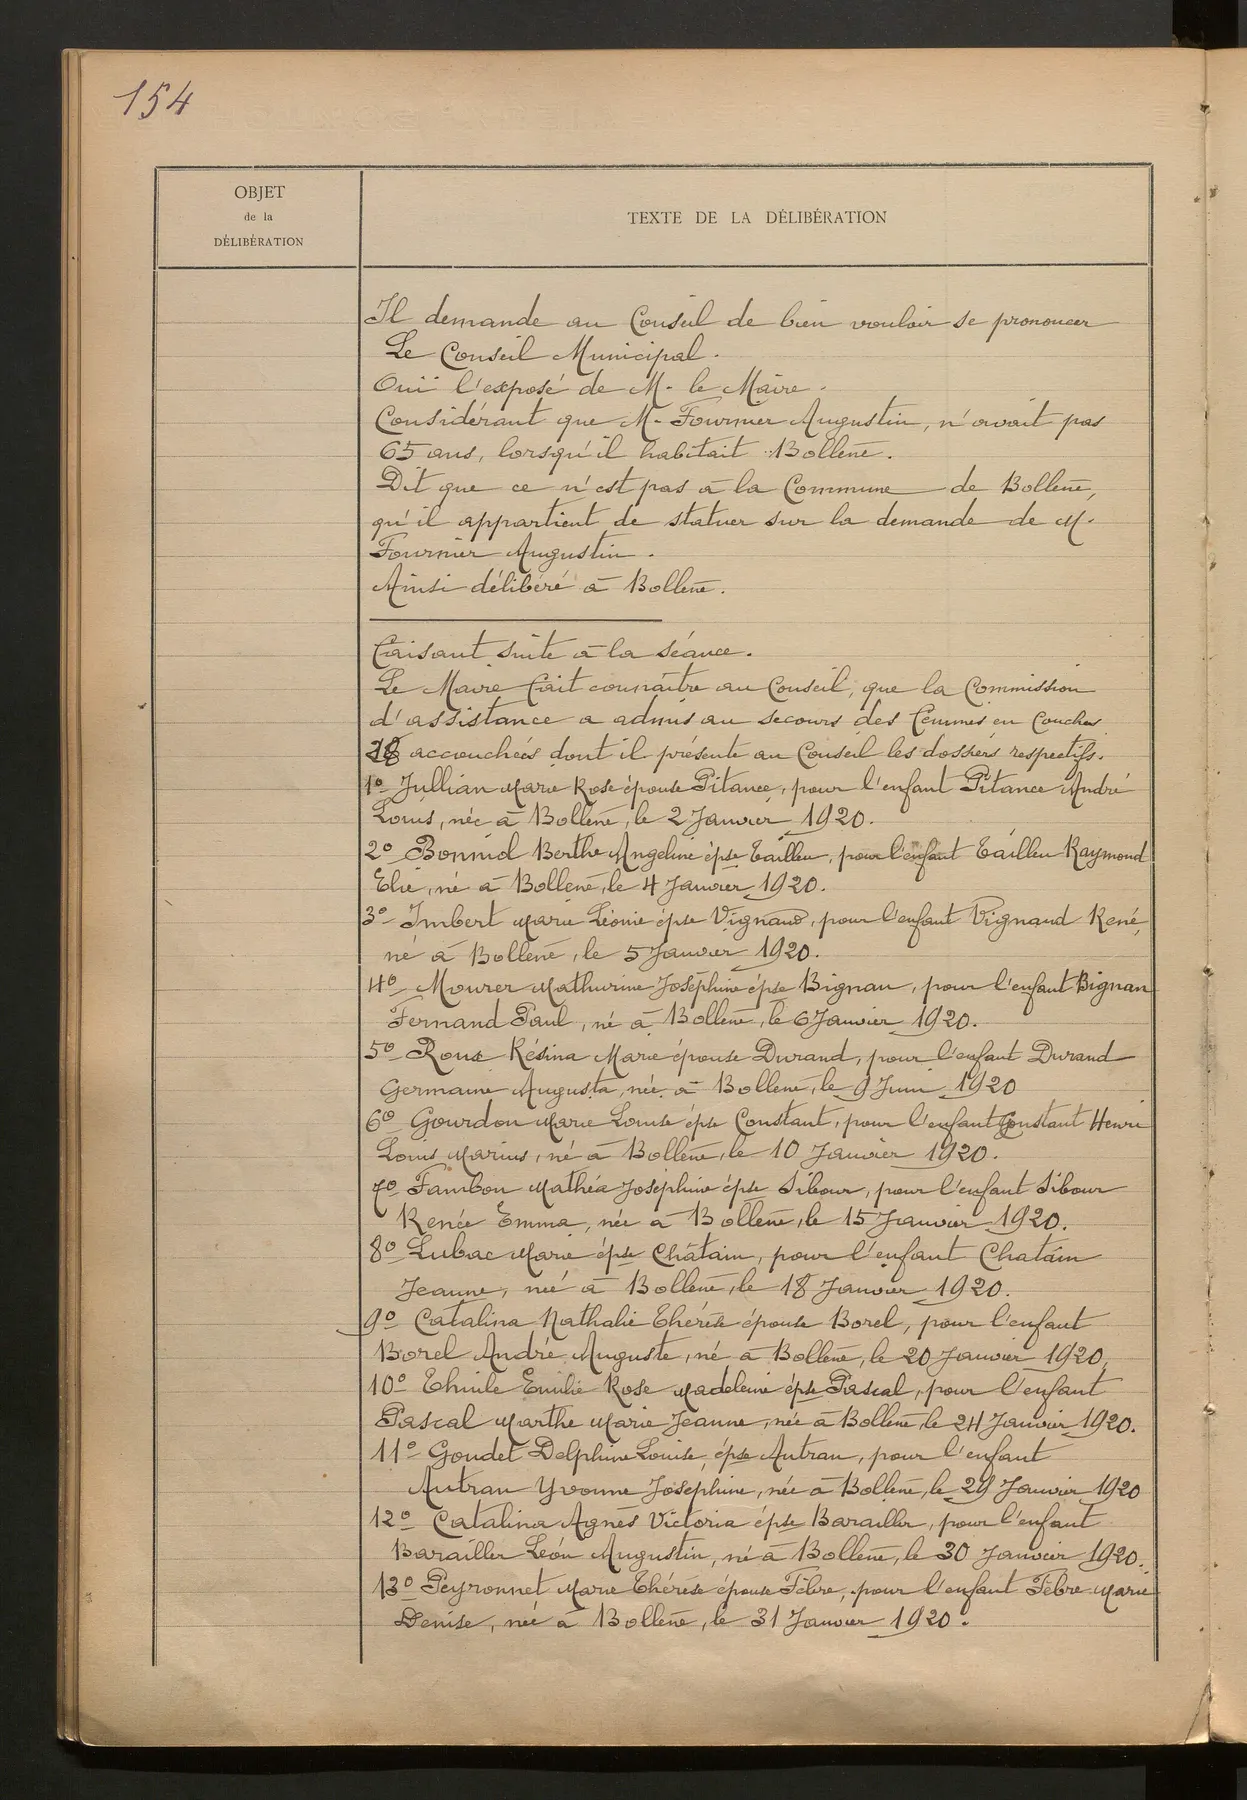 154
OBJET
de la
DÉLIBÉRATION
TEXTE DE LA DÉLIBÉRATION
Il demande au Conseil de bien vouloir se prononcer
Le Conseil Municipal.
Ouï l'exposé de M. le Maire.
Considérant que M. Fournier Augustin, n'avait pas
65 ans, lorsqu'il habitait Bollène.
Dit que ce n'est pas à la Commune de Bollène,
qu'il appartient de statuer sur la demande de M.
Fournier Augustin.
Ainsi délibéré à Bollène.
Faisant suite à la séance.
Le Maire fait connaître au Conseil, que la Commission
d'assistance a admis au secours des femmes en couches
accouchées dont il présente au Conseil les dossiers respectifs.
1º Jullian Marie Rose épouse Pitance, pour l'enfant Pitance André
Louis, née à Bollène, le 2 Janvier 1920.
2º Bonniol Berthe Angeline épse Tailleu, pour l'enfant Tailleu Raymond
Elie, né à Bollène, le 4 Janvier 1920.
3º Imbert Marie Léonie épse Vignaud, pour l'enfant Vignaud René,
né à Bollène, le 5 Janvier 1920.
4º Mourer Mathurine Joséphine épse Bignan, pour l'enfant Bignan
Fernand Paul, né à Bollène, le 6 Janvier 1920.
5º Roux Résina Marie épouse Durand, pour l'enfant Durand
Germaine Augusta, née à Bollène, le 9 Juin 1920
6º Gourdon Marie Louise épse Constant, pour l'enfant Constant Henri
Louis Marius, né à Bollène, le 10 Janvier 1920.
7º Fambon Mathéa Joséphine épse Sibour, pour l'enfant Sibour
Renée Emma, née à Bollène, le 15 Janvier 1920.
8º Lubac Marie épse Châtain, pour l'enfant Chatain
Jeanne, née à Bollène, le 18 Janvier 1920.
9º Catalina Nathalie Thérèse épouse Borel, pour l'enfant
Borel André Auguste, né à Bollène, le 20 Janvier 1920.
10º Thiule Emilie Rose Madeleine épse Pascal, pour l'enfant
Pascal Marthe Marie Jeanne, née à Bollène, le 24 Janvier 1920.
11º Goudet Delphine Louise, épse Autran, pour l'enfant
Autran Yvonne Joséphine, née à Bollène, le 29 Janvier 1920
12º Catalina Agnès Victoria épse Barailler, pour l'enfant
Barailler Léon Augustin, né à Bollène, le 30 Janvier 1920.
13º Peyronnet Marie Thérèse épouse Fèbre, pour l'enfant Fèbre Marie
Denise, née à Bollène, le 31 Janvier 1920.